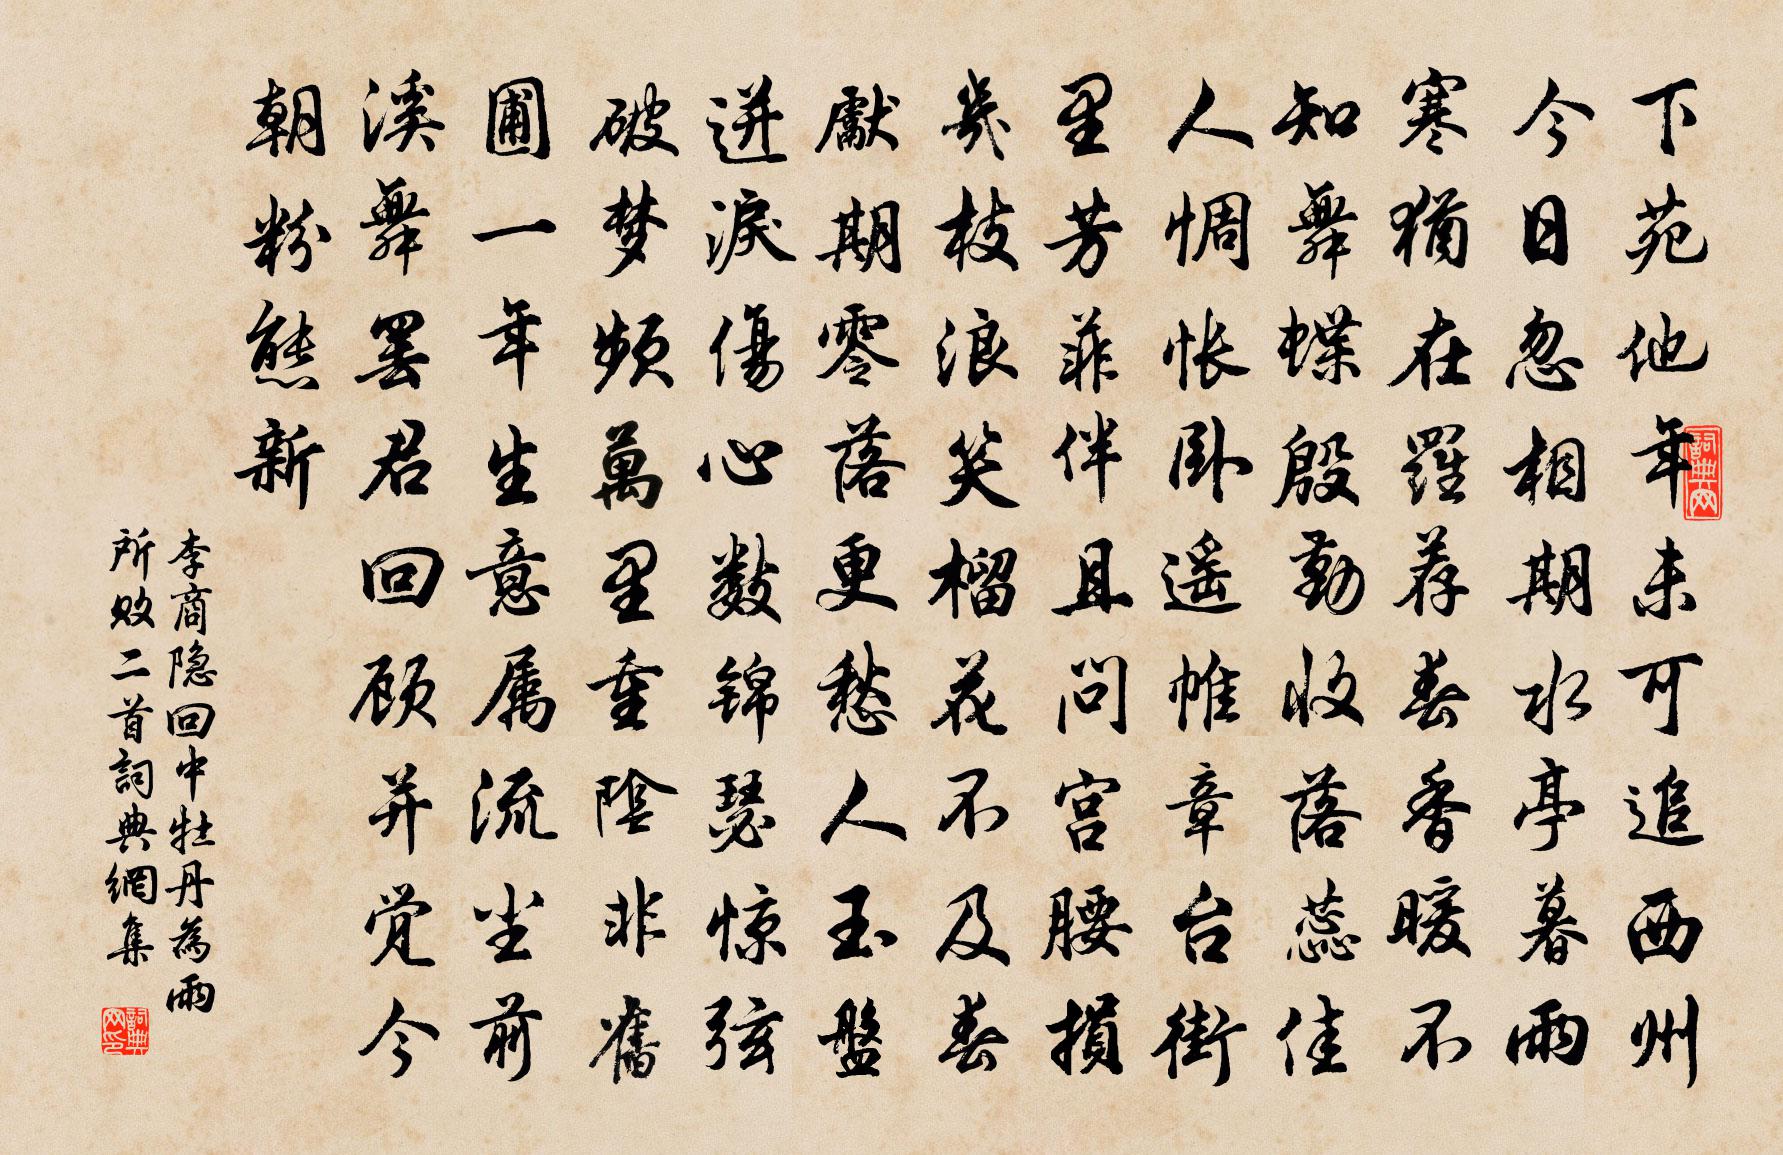 詞典网
下苑他年未可追西州
今日忽相期水亭暮雨
寒猶在羅荐春香暖不
知舞蝶殷勤收落蕊佳
人惆怅卧遥帷章台街
里芳菲伴且问宫腰損
幾枝浪笑榴花不及春
獻期零落更愁人玉盤
迸淚傷心数锦瑟惊弦
破梦频萬里重陰非舊
圃一年生意属流尘前
溪舞罢君回顾并觉今
朝粉態新
李商隐回中牡丹為雨
所败二首詞典網集
詞典网印